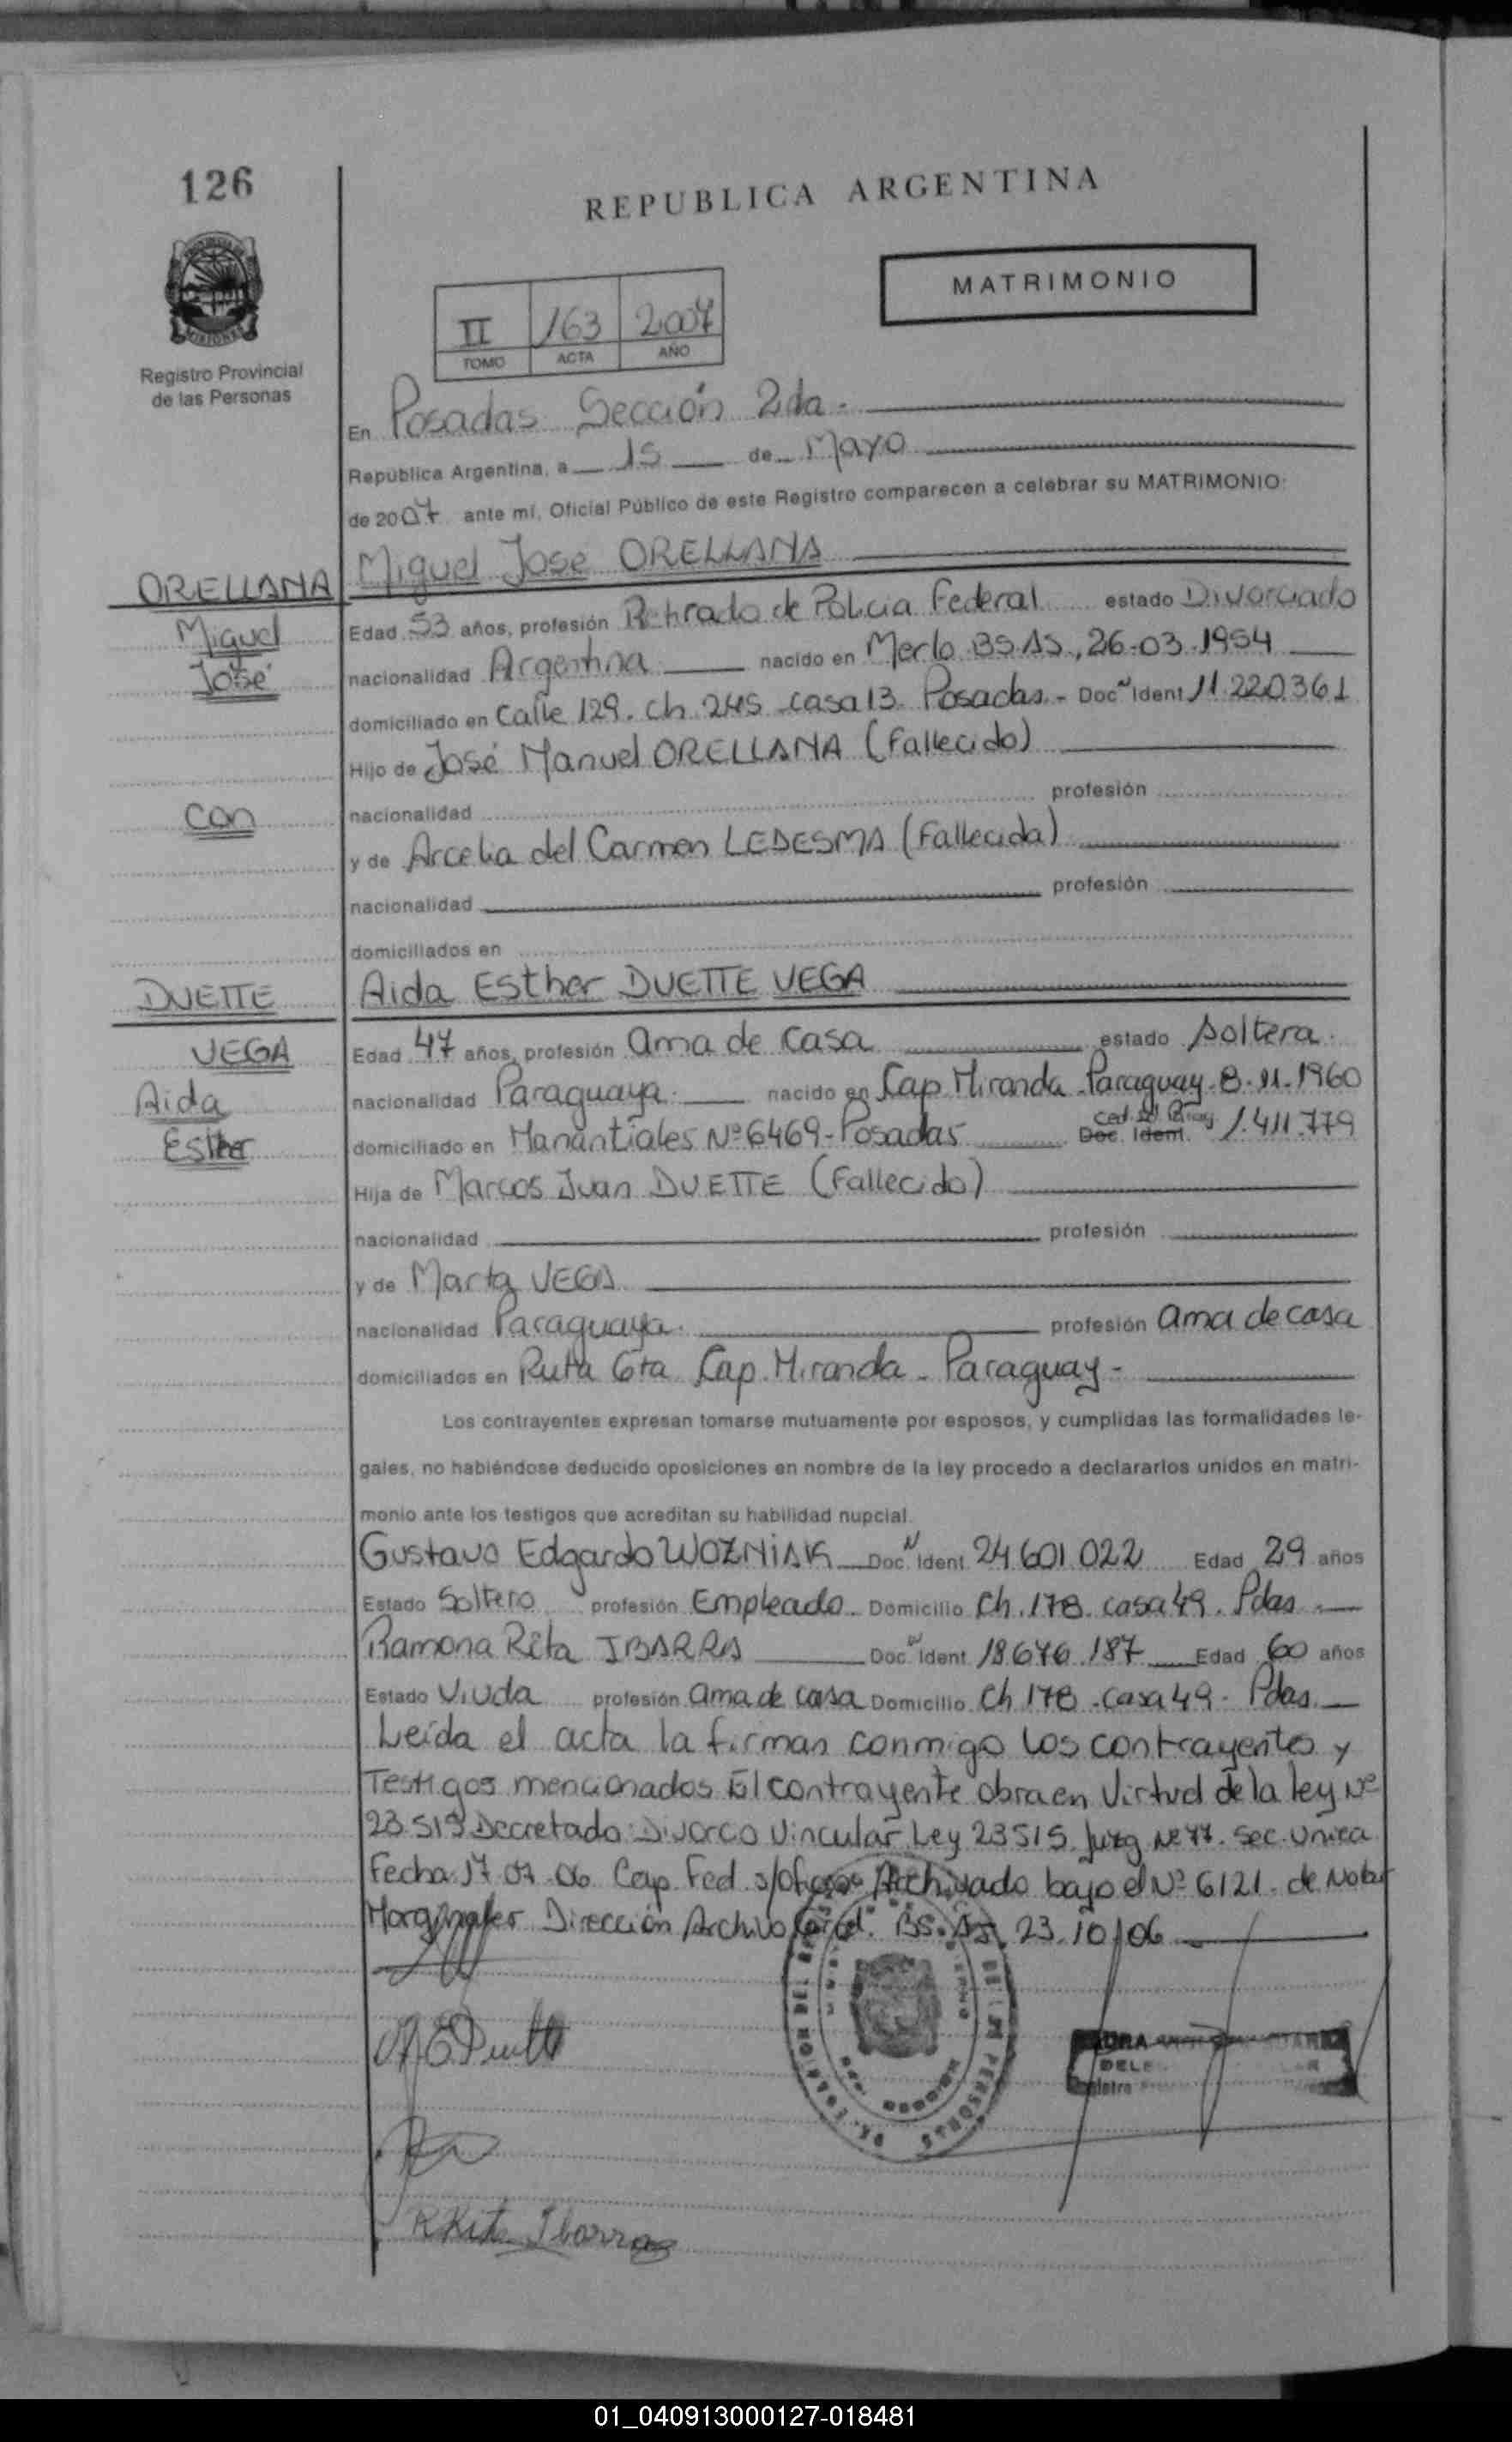 126
REPUBLICA ARGENTINA
MATRIMONIO
II 163 2007
TOMO ACTA AÑO
Registro Provincial
de las Personas
En Posadas Sección 2da.
República Argentina, a 15 de Mayo
de 2007 ante mí, Oficial Público de este Registro comparecen a celebrar su MATRIMONIO:
ORELLANA Miguel Jose ORELLANA
Miguel Edad 53 años, profesión Retirado de Policia Federal estado Divorciado
José nacionalidad Argentina nacido en Merlo BS AS, 26-03-1954
domiciliado en Calle 129. ch 245 casa 13. Posadas.- Doc. N Ident 11.220.361
Hijo de José Manuel ORELLANA (Fallecido)
Con nacionalidad profesión
y de Arcelia del Carmen LEDESMA (Fallecida)
nacionalidad profesión
domiciliados en
DUETTE Aida Esther DUETTE VEGA
VEGA Edad 47 años, profesión ama de casa estado soltera.
Aida nacionalidad Paraguaya. nacido en Cap. Miranda - Paraguay - 8-11-1960
Esther domiciliado en Manantiales Nº 6469 - Posadas Doc. Ident. Ced. 1.411.779
Hija de Marcos Juan DUETTE (Fallecido)
nacionalidad profesión
y de Marta VEGA
nacionalidad Paraguaya. profesión ama de casa
domiciliados en Ruta 6ta Cap. Miranda - Paraguay -
Los contrayentes expresan tomarse mutuamente por esposos, y cumplidas las formalidades le-
gales, no habiéndose deducido oposiciones en nombre de la ley procedo a declararlos unidos en matri-
monio ante los testigos que acreditan su habilidad nupcial.
Gustavo Edgardo WOZNIAK Doc. N Ident 24.601.022 Edad 29 años
Estado Soltero profesión Empleado. Domicilio Ch. 178. casa 49. Pdas.
Ramona Rita IBARRA Doc. N Ident 18.676.187 Edad 60 años
Estado Viuda profesión ama de casa Domicilio Ch 178 - casa 49 - Pdas.
Leída el acta la firman conmigo los contrayentes y
Testigos mencionados El contrayente obra en virtud de la ley Nº
23.515 Decretado: Divorcio Vincular Ley 23515. Juzg Nº 77. Sec. Unica
Fecha 17 07 06 Cap. Fed. s/oficio Archivado bajo el Nº 6121. de Notas
Marginales Dirección Archivo Gral. BS. AS. 23.10/06
A E Duette
DE LAS PERSONAS
R Rita Ibarra
01_040913000127-018481